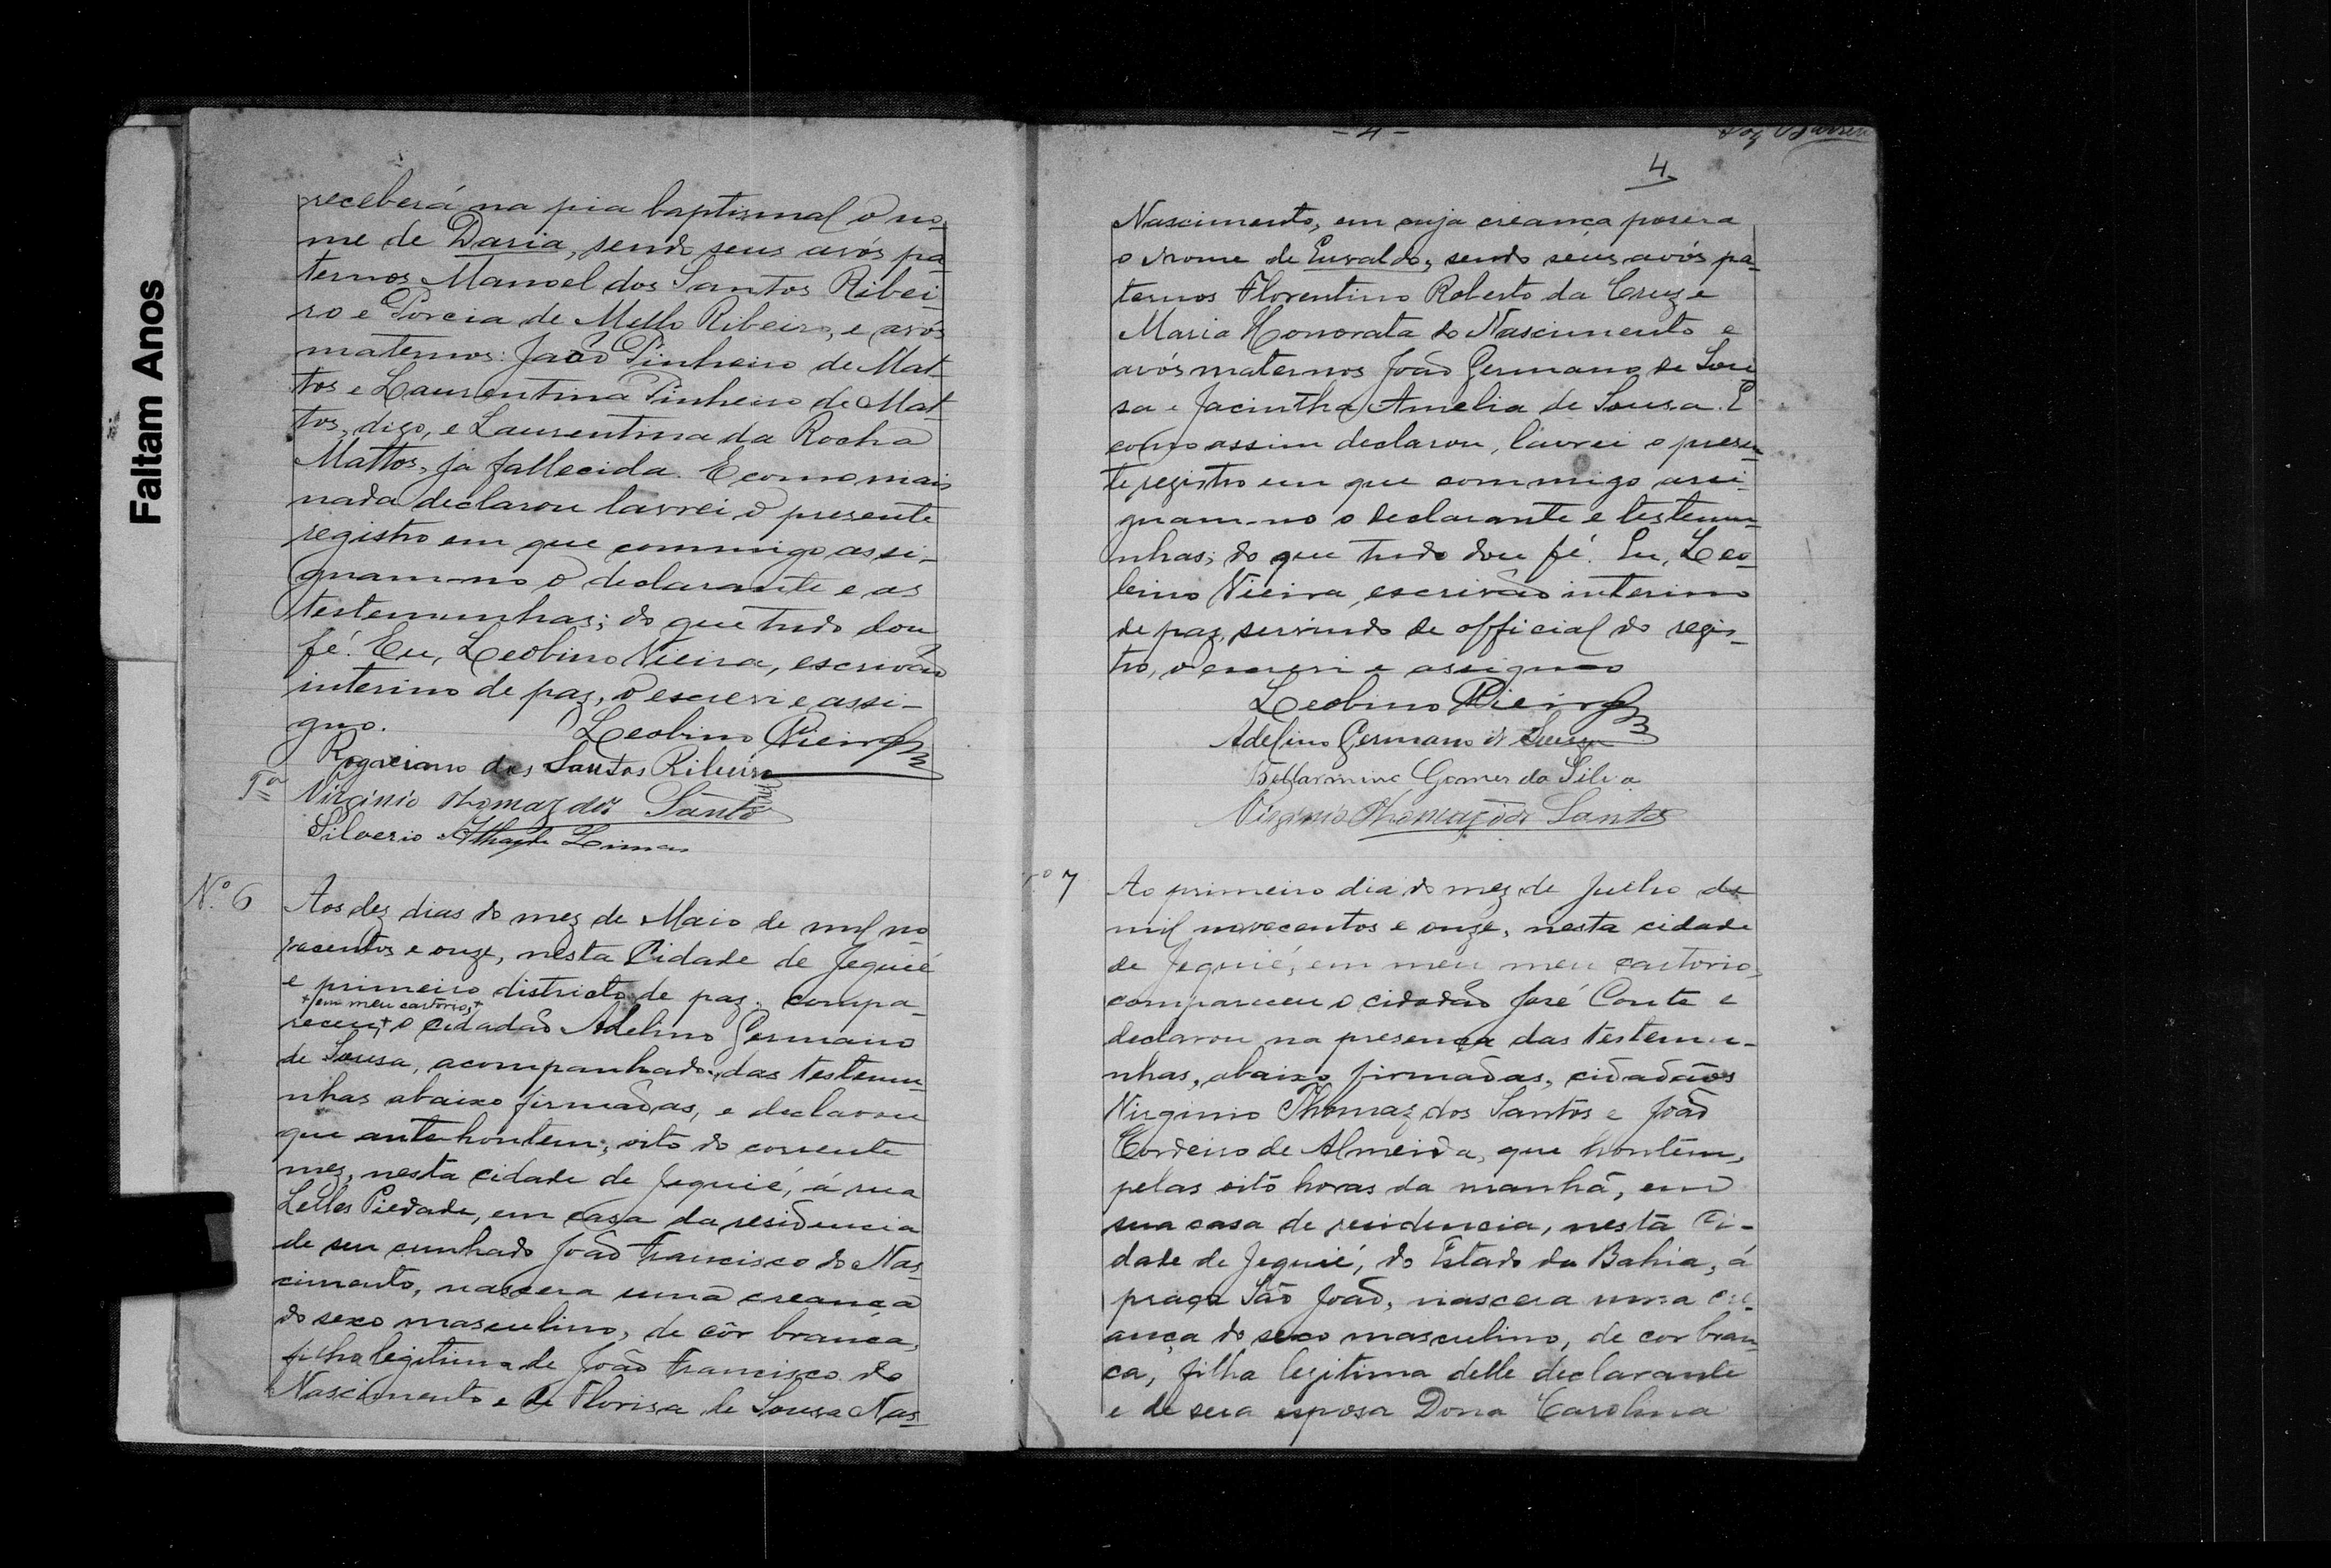 Faltam Anos
receberá na pia baptismal o no-
me de Daria, sendo seus avós pa-
ternos Manoel dos Santos Ribei-
ro e Porcia de Mello Ribeiro, e avós
maternos: João Pinheiro de Mat-
tos e Laurentina Pinheiro de Mat-
tos, digo, e Laurentina da Rocha
Mattos, já fallecida. E como mais
nada declarou lavrei o presente
registro em que commigo assi-
gnam-no o declarante e as
testemunhas; do que tudo dou
fé. Eu, Leobino Vieira, escrivão
interino de paz, o escrevi e assi-
gno. Leobino Vieira
Rogaciano dos Santos Ribeiro
Tas Virginio Thomaz dos Santos
Silverio Athayde Lima
Nº 6 Aos dez dias do mez de Maio de mil no-
vecentos e onze, nesta Cidade de Jequié
e primeiro districto de paz, compa-
+ em meu cartorio, +
receu + o cidadão Adelino Germano
de Sousa, acompanhado das testemu-
nhas abaixo firmadas, e declarou
que ante-hontem, oito do corrente
mez, nesta cidade de Jequié, á rua
Lelles Piedade, em casa da residencia
de seu cunhado João Francisco do Nas-
cimento, nascera uma creança
do sexo masculino, de côr branca,
filha legitima de João Francisco do
Nascimento e de Florisa de Sousa Nas-
- 4 -
4
Nascimento, em cuja creança posera
o nome de Euvaldo, sendo seus avós pa-
ternos Florentino Roberto da Cruz e
Maria Honorata do Nascimento e
avós maternos João Germano de Sou-
sa e Jacintha Amelia de Sousa. E
como assim declarou, lavrei o presen-
te registro em que commigo assi-
gnam-no o declarante e testemu-
nhas; do que tudo dou fé. Eu, Leo-
bino Vieira, escrivão interino
de paz, servindo de official do regis-
tro, o escrevi e assigno
Leobino Vieira
Adelino Germano de Sousa
Bellarmino Gomes da Silva
Virginio Thomaz dos Santos
nº 7 Ao primeiro dia do mez de Julho de
mil novecentos e onze, nesta cidade
de Jequié, em meu meu cartorio,
compareceu o cidadão José Conte e
declarou na presença das testemu-
nhas, abaixo firmadas, cidadãos
Virginio Thomaz dos Santos e João
Cordeiro de Almeida, que hontem,
pelas oito horas da manhã, em
sua casa de residencia, nesta Ci-
dade de Jequié, do Estado da Bahia, á
praça São João, nascera uma cre-
ança do sexo masculino, de cor bran-
ca, filha legitima delle declarante
e de sua esposa Dona Carolina